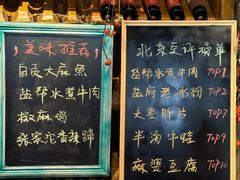 美味推荐
自贡大麻鱼
盐帮水煮牛肉
椒麻鸡
张家沱香辣蹄
北京点评榜单
盐帮水煮牛肉 TOP1
盐府老冰粉 TOP2
夫妻肺片 TOP7
半汤牛蛙 TOP9
麻婆豆腐 TOP10